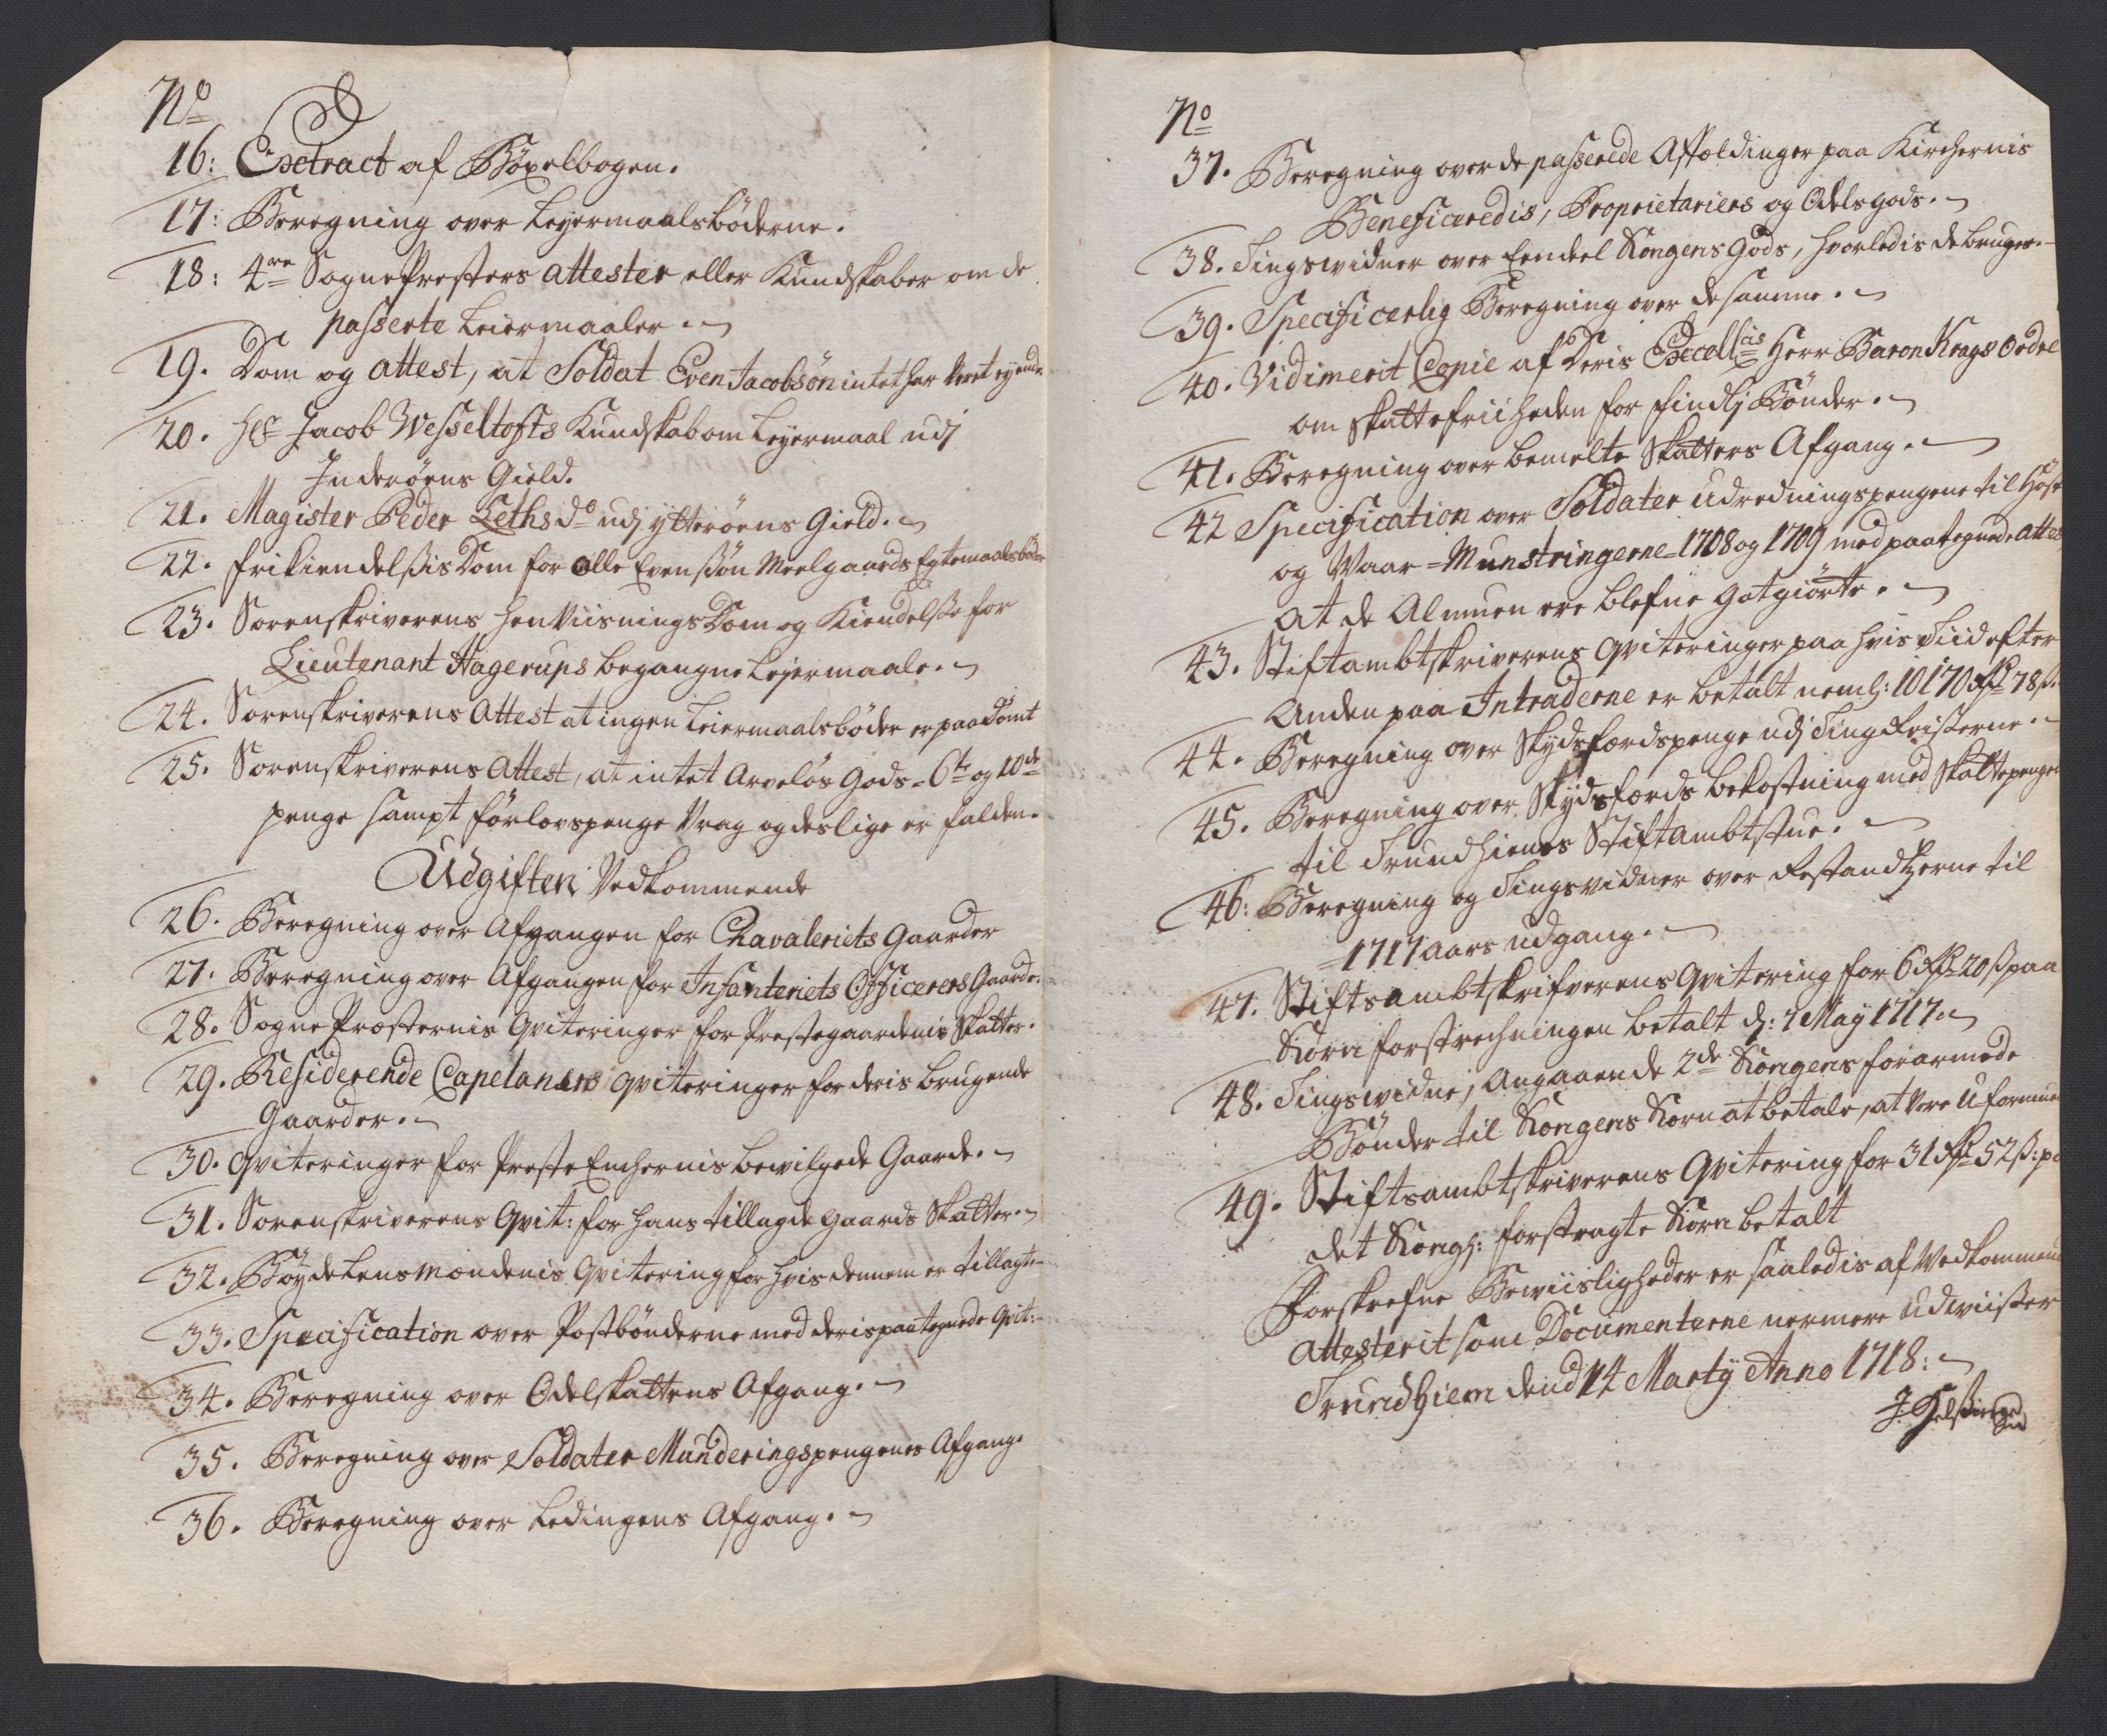 No
16: Extract af Böxelbogen.
17: Beregning over Leyermaalsböderne.
18: 4re SognePresters attester eller Kundskaber om de
passerte Leiermaaler.
19. Dom og attest, at Soldat Even Jacobsön intet har veret eyende
20. Hr Jacob Wesseltofts Kundskab om Leyermaal udj
Inderöens Gield.
21. Magister Peder Leths do udj ytteröens Gield.
22. frikiendelssis Dom for olle Evenssön Meelgaards Egtemaalsböder
23. Sorenskriverens henviisnings Dom og Kiendelsse for
Lieutenant Hagerups begangne Leyermaale.
24. Sorenskriverens Attest at ingen Leiermaalsböder er paadömt
25. Sorenskriverens Attest, at intet Arvelös Gods = 6te og 10de
penge sampt förlovspenge Vrag og deslige er falden.
Udgiften Vedkommende
26. Beregning over Afgangen for Cavaleriets Gaarder
27. Beregning over Afgangen for Infanteriets Officerers Gaarde.
28. Sogne Præsternis Qviteringer for Prestegaardenis Skatter.
29. Residerende Capelaners qviteringer for deris brugende
Gaarder.
30. qviteringer for Preste Enchernis bevilgede Gaarde.
31. Sorenskriverens Qvit: for hans tillagde gaards Skatter.
32. Böyde Lensmændenis Qvitering for hvis dennem er tillagt
33. Specification over Postbönderne med deris paategnede qvit:
34. Beregning over Odelskattens Afgang.
35. Beregning over Soldater Munderingspengenes Afgang.
36. Beregning over Ledingens Afgang.
No
37. Beregning over de passerede Affældinger paa Kirchernis
Beneficeredis, Proprietariers og Odelsgods.
38. Tingsvidner over Eendeel Kongens Gods, hvorledis de bruges.
39. Specificerlig Beregning over de samme.
40. Vidimerit Copie af Deris Excellcis Herr Baron Krags ordre
om skattefriiheden for findlj Bönder.
41. Beregning over bemelte Skatters Afgang.
42 Specification over Soldater udredningspengene til Höst
og Vaar = Munstringerne = 1708 og 1709 med paategnede attes
at de Almuen ere blefne gotgiörte.
43. Stiftambtskriverens qviteringer paa hvis Tiid efter
Anden paa Intraderne er betalt neml: 10170 Rdr 78 ss.
44. Beregning over Skydsfærdspenge udj Tingreiserne.
45. Beregning over Skydsfærds bekostning med Skattepengene
til Trundhiems Stiftambtstue.
46: Beregning og Tingsvidner over Restandtzerne til
= 1717 aars udgang.
47. Stiftsambtskrifverens Qvitering for 6 Rdr 20 ss paa
Korn forstrechningen betalt d: 7 May 1717.
48. Tingsvidne, Angaaende 2de Kongens forarmede
Bönder til Kongens Korn at betale, at vere uformuen
49. Stiftsambtskriverens Qvitering for 31 Rdr 52 ss: pa
det Kongl: forstragte Korn betalt
Forskrefne Beviisligheder er saaledis af Vedkommend
Attesterit som Documenterne nermere Udviisser
Trundhiem dend 14 Marty Anno 1718.